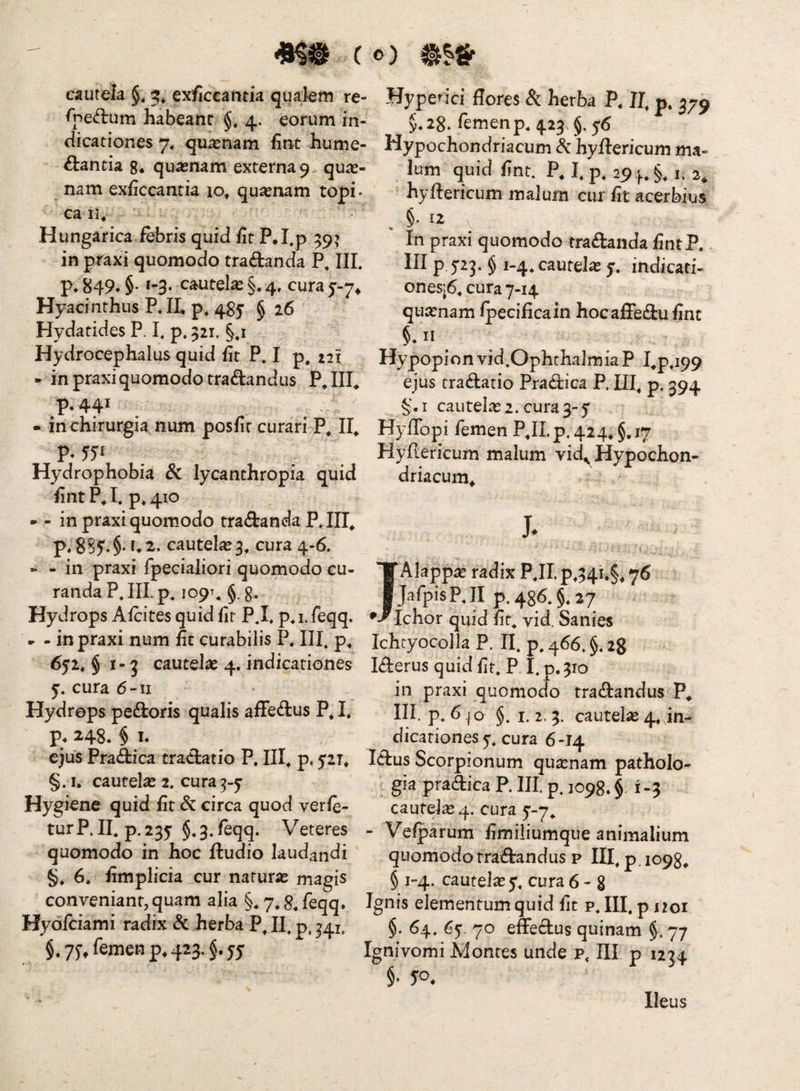 ( o )
cautela §. 3. exſiccantia qualem re-
ſpectum habeant §. 4. eorum in-
dicationes 7. quænam ſint hume-
ctantia 8. quænam externa 9 quæ-
nam exſiccantia 10. quænam topi-
ca 11.
Hungarica febris quid ſit P. I.p 393
in praxi quomodo tractanda P. III.
p. 849. §. 1-3. cautelæ §. 4. cura 5-7.
Hyacinthus P. II. p. 485 § 26
Hydatides P. I. p. 321. §.1
Hydrocephalus quid ſit P. I p. 221
- in praxi quomodo tractandus P. III.
p. 441
- in chirurgia num posſit curari P. II.
p. 551
Hydrophobia & lycanthropia quid
ſint P. I. p. 410
- - in praxi quomodo tractanda P. III.
p. 885. §. 1. 2. cautelæ 3, cura 4-6.
- - in praxi ſpecialiori quomodo cu-
randa P. III. p. §. 8.
Hydrops Aſcites quid ſit P.I. p. 1. ſeqq.
- - in praxi num ſit curabilis P. III. p.
652. § 1-3 cautelæ 4. indicationes
5. cura 6-11
Hydrops pectoris qualis affectus P. I.
p. 248. § 1.
ejus Practica tractatio P. III. p. 521.
§. 1. cautelæ 2. cura 3-5
Hygiene quid ſit & circa quod verſe-
tur P. II. p. 235 §.3. ſeqq. Veteres
quomodo in hoc ſtudio laudandi
§. 6. ſimplicia cur naturæ magis
conveniant, quam alia §. 7. 8. ſeqq.
Hyoſciami radix & herba P. II. p. 341.
§. 75. ſemen p. 423. §. 55
Hyperici flores & herba P. II. p. 379
§. 28. ſemen p. 423 §. 56
Hypochondriacum & hyſtericum ma-
lum quid ſint. P. I. p. §. 1. 2.
hyſtericum malum cur ſit acerbius
§. 12
In praxi quomodo tractanda ſint P.
III p 523. § 1-4. cautelæ 5. indicati-
ones 6. cura 7-14
quænam ſpecifica in hoc affectu ſint
§. 11
Hypopion vid. Ophthalmia P I.p.199
ejus tractatio Practica P. III. p. 394
§. 1 cautelæ 2. cura 3-5
Hyſſopi ſemen P.II. p. 424. §. 17
Hyſtericum malum vid. Hypochon-
driacum.
J.
JAlappæ radix P.II. p.341. §. 76
Jaſpis P. II p. 486. §. 27
Ichor quid ſit. vid. Sanies
Ichtyocolla P. II. p. 466. §. 28
Icterus quid ſit. P I. p. 310
in praxi quomodo tractandus P.
III. p. §. 1. 2. 3. cautelæ 4. in-
dicationes 5. cura 6-14
Ictus Scorpionum quænam patholo-
gia practica P. III. p. 1098. § 1-3
cautelæ 4. cura 5-7.
- Veſparum ſimiliumque animalium
quomodo tractandus P III. p. 1098.
§ 1-4. cautelæ 5. cura 6 - 8
Ignis elementum quid ſit P. III. p 1101
§. 64. 65. 70 effectus quinam §. 77
Ignivomi Montes unde P. III p 1234
§. 50.
Ileus